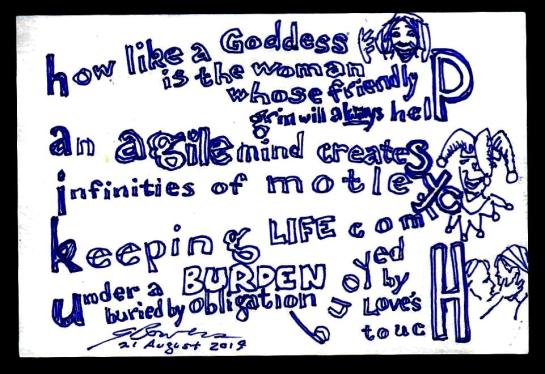 how like a Goddess
is the woman
whose friendly
grin will always helP
an agile mind createS
infinities of motleY
keeping LIFE comiC
under a BURDEN
buried by obligation
buoyed
by
Love's
toucH
21 August 2019